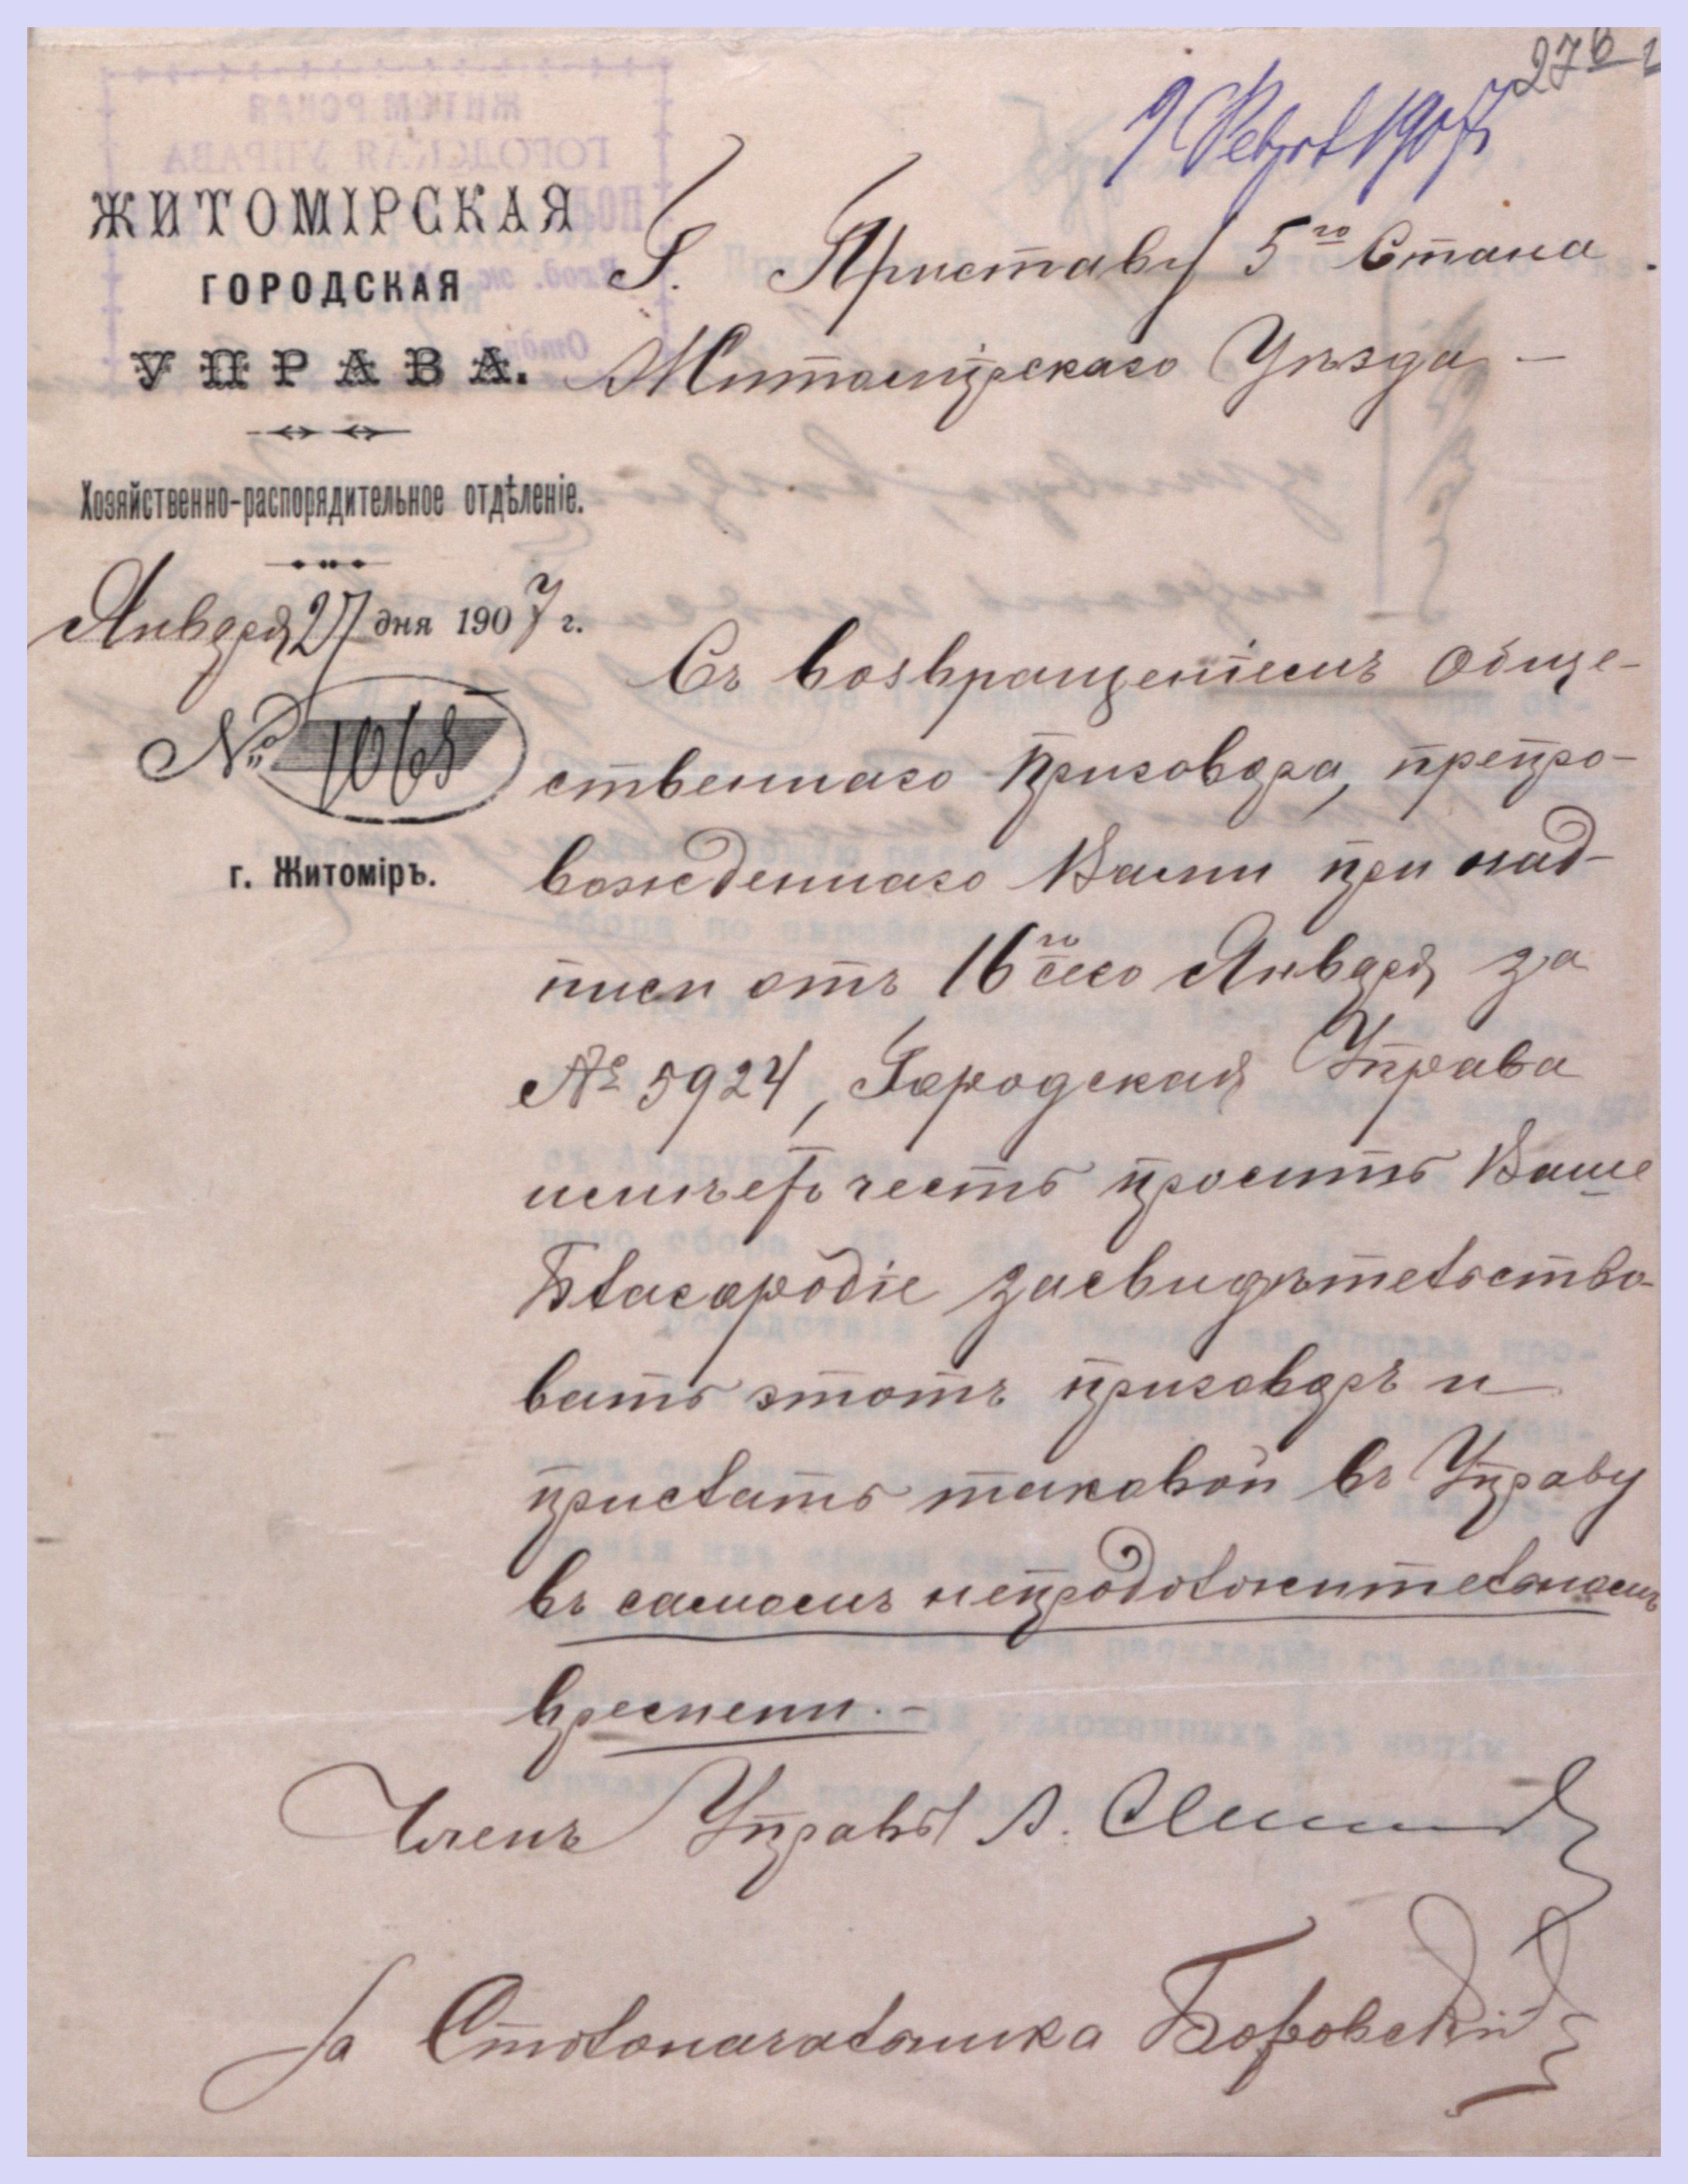 27
9 Февр 1907
ЖИТОМІРСКАЯ
ГОРОДСКАЯ
УПРАВА.
Хозяйственно-распорядительное отдѣленіе.
Января 27 дня 1907 г.
№ 1065
г. Житоміръ.
Г. Приставу 5го Стана
Житомірскаго Уѣзда
Съ возвращеніемъ обще-
ственнаго приговора, препро-
вожденнаго Вами при над-
писи отъ 16го сего Января за
№ 5924, Городская Управа
имѣетъ честь просить Ваше
Благородіе засвидѣтельство-
вать этотъ приговоръ и
прислать таковой въ Управу
въ самомъ непродолжительномъ
времени.-
Членъ Управы А.
За Столоначальника Боровскій